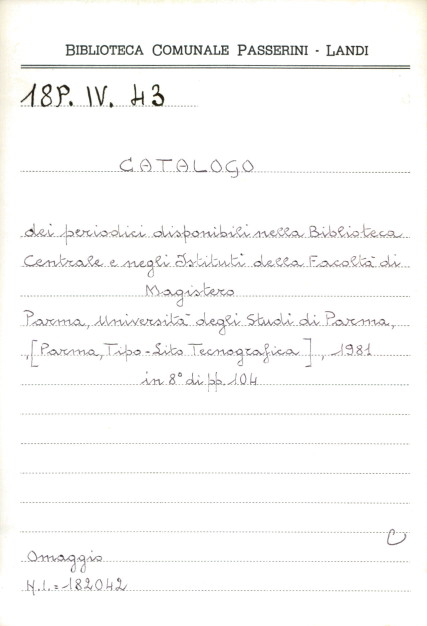 BIBLIOTECA COMUNALE PASSERINI - LANDI
18P. IV. 43
CATALOGO
dei periodici disponibili nella Biblioteca
Centrale e negli Istituti della Facoltà di
Magistero
Parma, Università degli Studi di Parma,
,[Parma, Tipo-Lito Tecnografica], 1981
in 8° di pp. 104
C
Omaggio
N.I.=182042